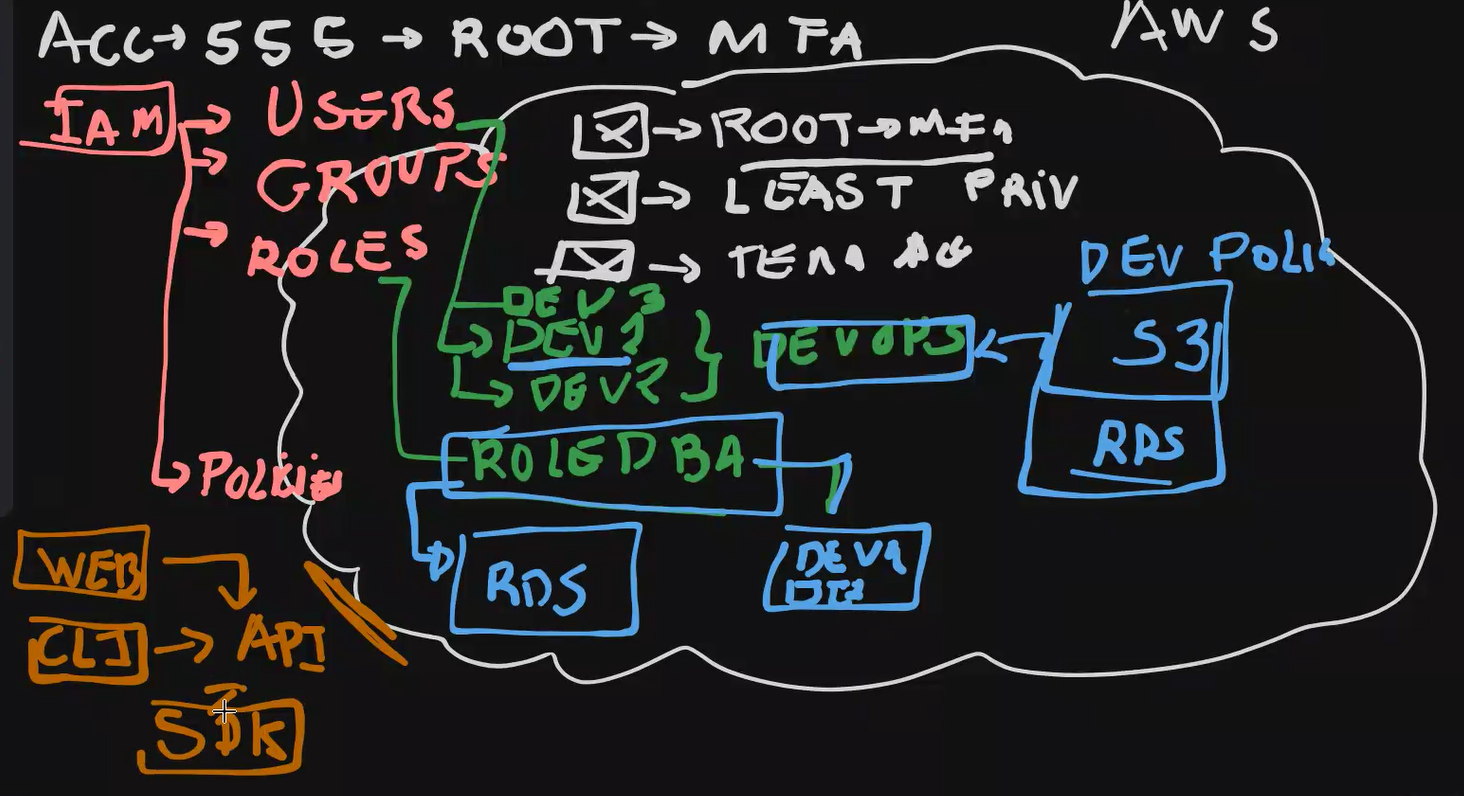 ACC → 555 → ROOT → MFA
AWS
IAM → USERS
→ GROUPS
→ ROLES
→ ROOT → MFA
→ LEAST PRIV
DEV 3
DEV 1
DEV 2
DEVOPS
DEV
S3
RDS
ROLE DBA
RDS
DEV1
WEB
CLI → API
SDK